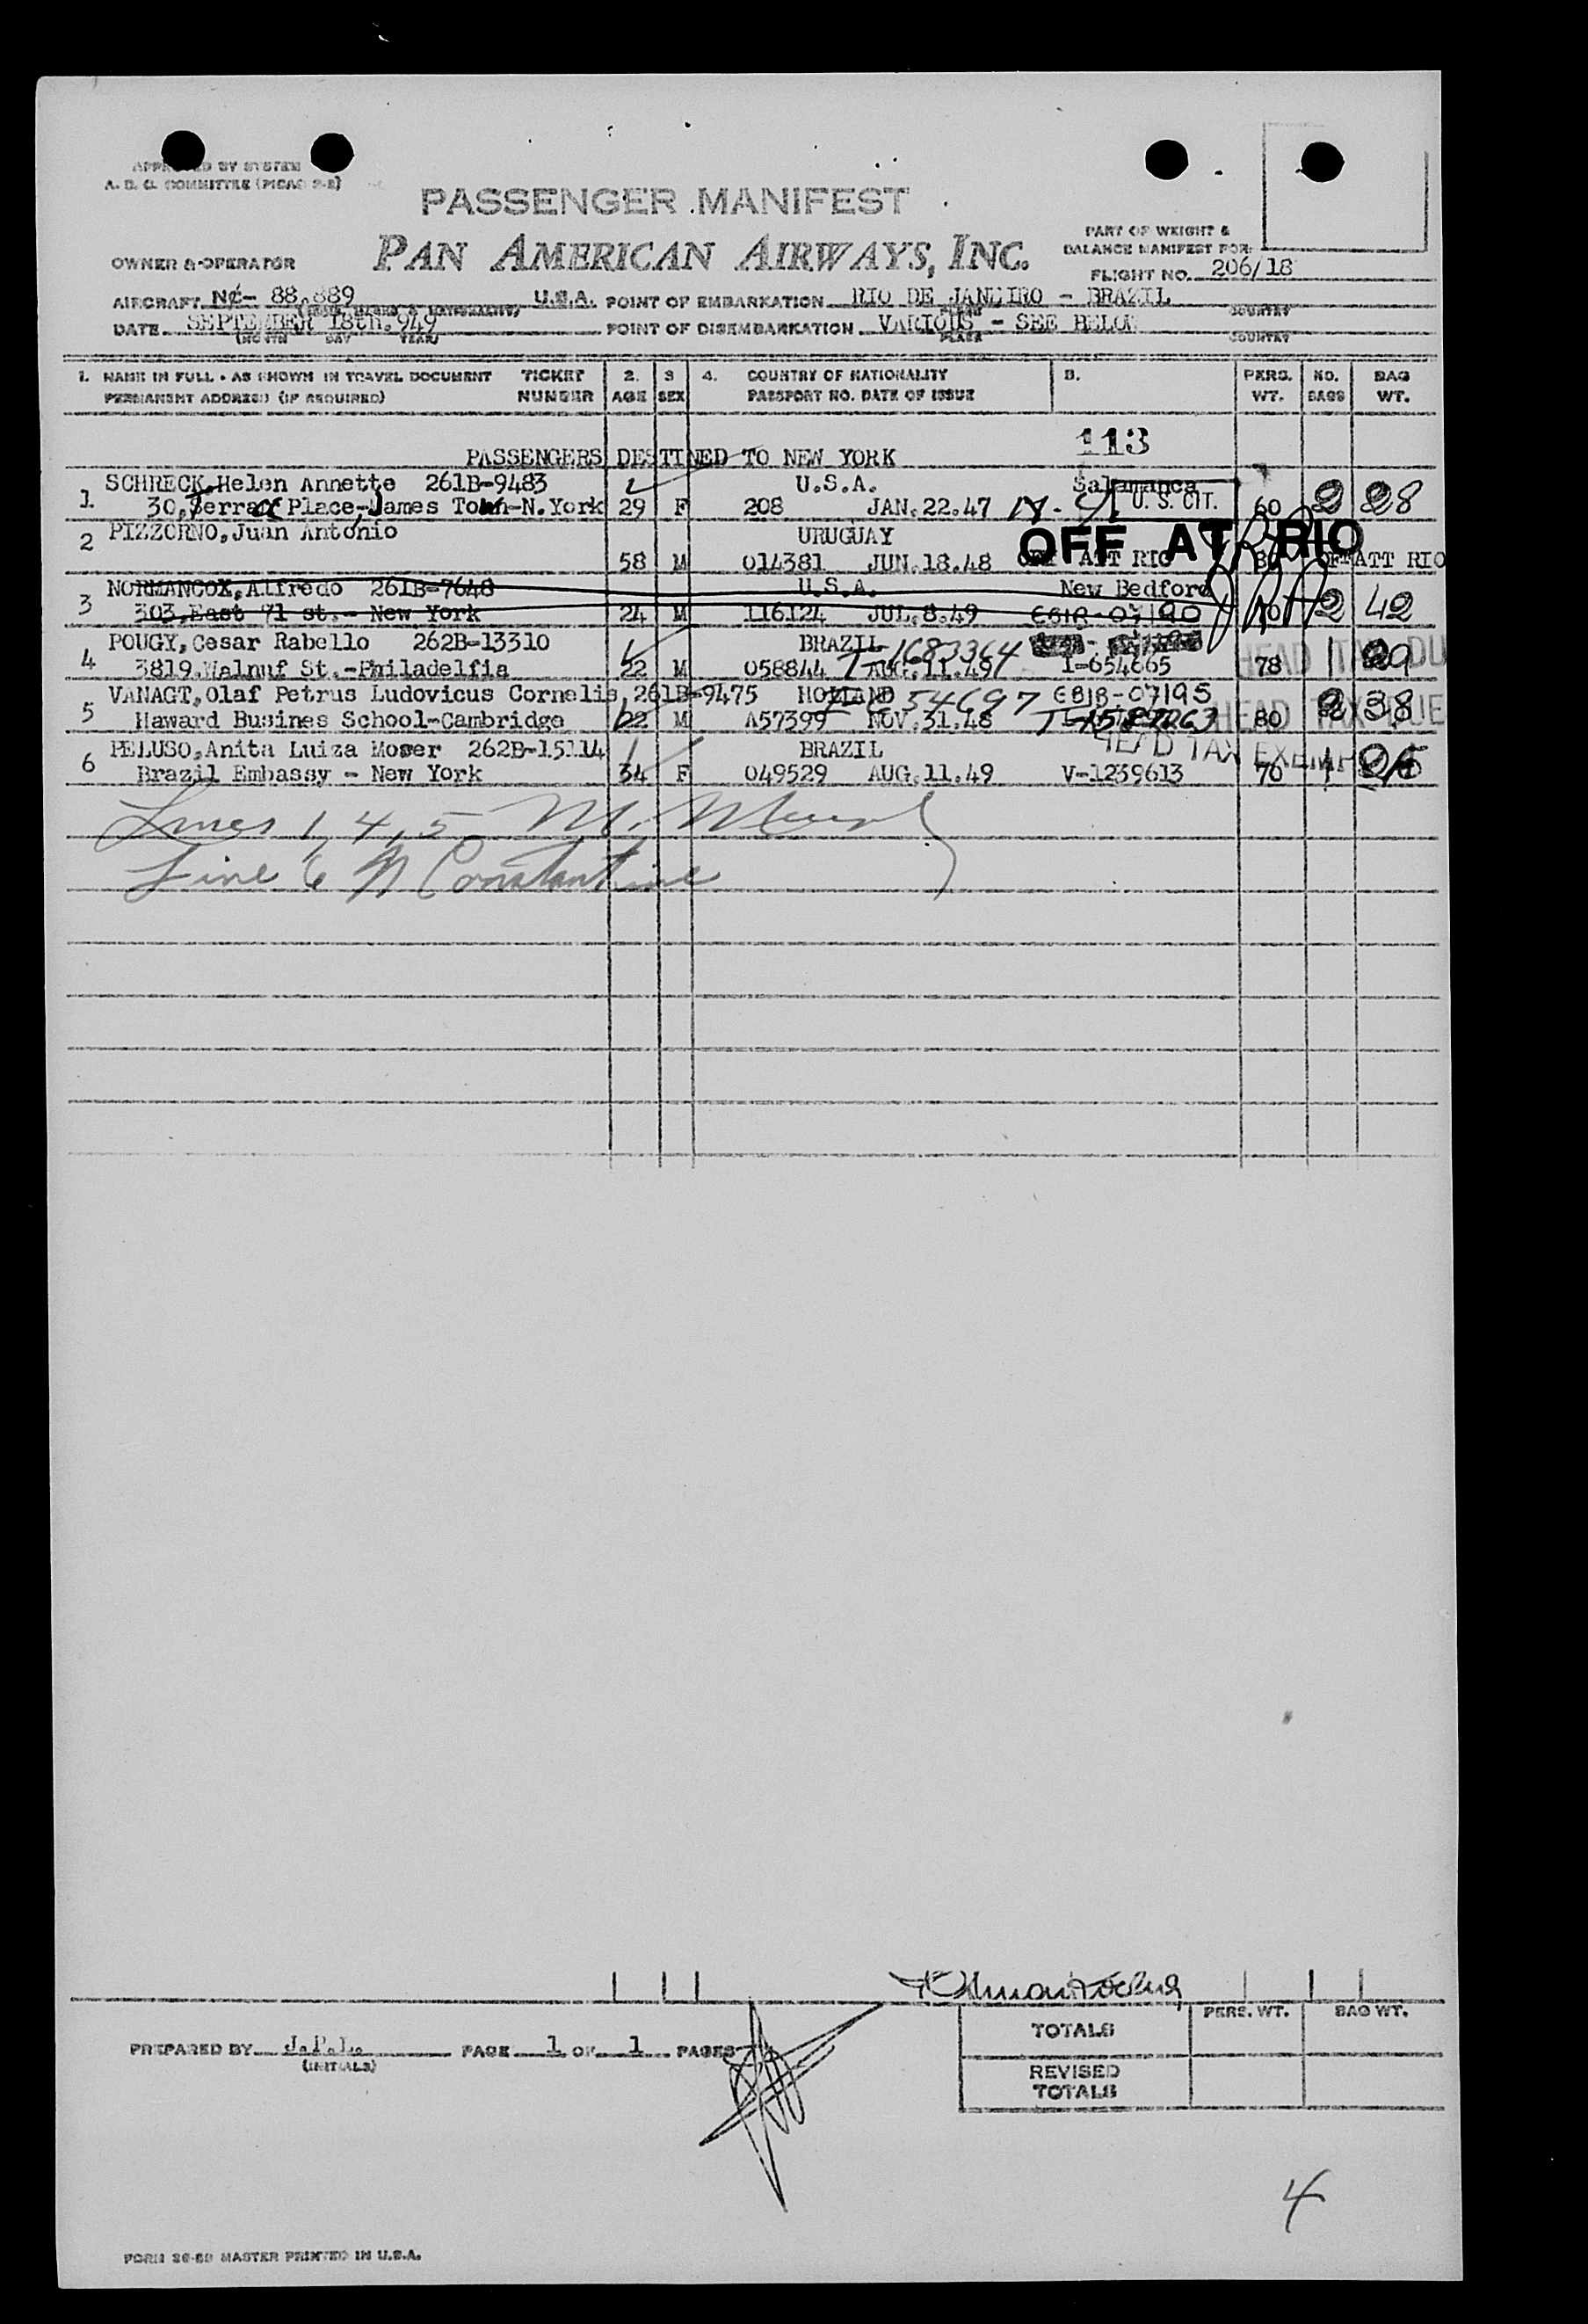 APPROVED BY SYSTEM
A. D. C. COMMITTEE (PICAO 2-2)
PASSENGER MANIFEST
PAN AMERICAN AIRWAYS, INC.
PART OF WEIGHT &
BALANCE MANIFEST FOR:
OWNER & OPERATOR
FLIGHT NO. 206/18
AIRCRAFT NC- 88.889 U.S.A. POINT OF EMBARKATION RIO DE JANEIRO - BRAZIL
COUNTRY
DATE SEPTEMBER 18th.949 POINT OF DISEMBARKATION VARIOUS - SEE BELOW
(MONTH DAY YEAR) PLACE COUNTRY
1. NAME IN FULL - AS SHOWN IN TRAVEL DOCUMENT TICKET 2. 3 4. COUNTRY OF NATIONALITY B. PERS. NO. BAG
PERMANENT ADDRESS (IF REQUIRED) NUMBER AGE SEX PASSPORT NO. DATE OF ISSUE WT. BAGS WT.
113
PASSENGERS DESTINED TO NEW YORK
SCHRECK,Helen Annette 261B-9483 U.S.A. Salamanca
1 30, Place-James Town-N.York 29 F 208 JAN.22.47 N.Y. U. S. CIT. 60 2 28
2 PIZZORNO,Juan Antonio URUGUAY OFF AT RIO
58 M 014381 JUN.18.48 ATT RIO 80 OFF ATT RIO
NORMANCOX,Alfredo 261B-7648 U.S.A. New Bedford
3 303,East 71 st.- New York 24 M 116124 JUL.8.49 70 2 42
POUGY,Cesar Rabello 262B-13310 BRAZIL T-1683364
4 3819.Walnuf St.-Philadelfia 22 M 058844 AUG.11.49 I-654665 78 1 29 HEAD TAX DU
VANAGT,Olaf Petrus Ludovicus Cornelis,261B-9475 HOLLAND 54697
5 Haward Busines School-Cambridge 22 M A57399 NOV.31.48 80 2 38 HEAD TAX DUE
PELUSO,Anita Luiza Moser 262B-15114 BRAZIL HEAD TAX EXEMPT
6 Brazil Embassy - New York 34 F 049529 AUG.11.49 V-1239613 70 1
Lines 1, 4, 5 M.
Line 6 N Constantine
PERS. WT. BAG WT.
TOTALS
PREPARED BY J.P.L. PAGE 1 OF 1 PAGES
(INITIALS)
REVISED
TOTALS
4
FORM 26-80 MASTER PRINTED IN U.S.A.